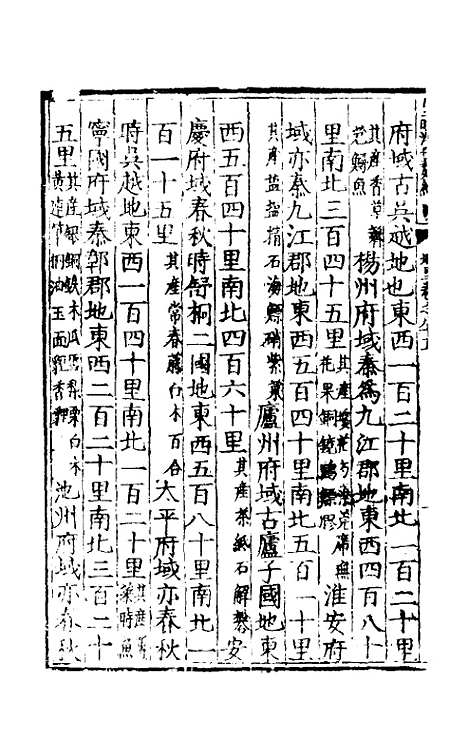 府域古吳越地也東西一百二十里南北一百二十里
其產香草 鱘魚 楊州府域秦爲九江郡地東西四百八十
里南北三百四十五里 其產 花果銅鏡 膠 淮安府
域亦秦九江郡地東西五百四十里南北五百一十里
其產 盐 石 海 硝紫菓 廬州府域古廬子國地東
西五百四十里南北四百六十里 其產茶紙石斛 安
慶府域春秋時舒桐二國地東西五百八十里南北一
百一十五里 其產常春藤白木百合 太平府域亦春秋
時吳越地東西一百四十里南北一百二十里 其產 鰣魚
寧國府域秦鄣郡地東西二百二十里南北三百二十
五里 其產銀銅鉄木瓜雪梨栗白木 黃連 桐油玉面貍香貍 池州府域亦春秋